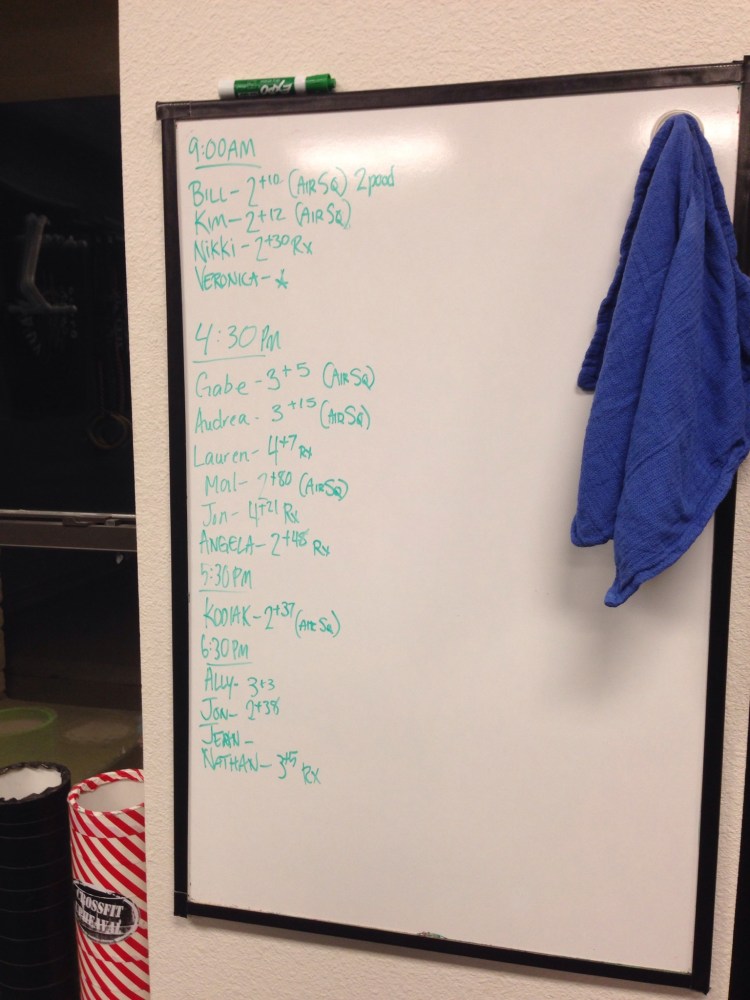 EXPO
9:00AM
BILL- 2+10 (AIR SQ) 2pood
Kim- 2+12 (AIR SQ)
Nikki - 2+30 Rx
VERONICA- *
4:30 PM
Gabe - 3+5 (AIR SQ)
Audrea- 3+15 (AIR SQ)
Lauren- 4+7 Rx
Mal- 2+80 (AIR SQ)
Jon- 4+21 Rx
ANGELA- 2+48 Rx
5:30PM
KODIAK- 2+37 (AIR SQ)
6:30PM
ALLY- 3+3
JON- 2+38
NATHAN- 3+5 Rx
CROSSFIT